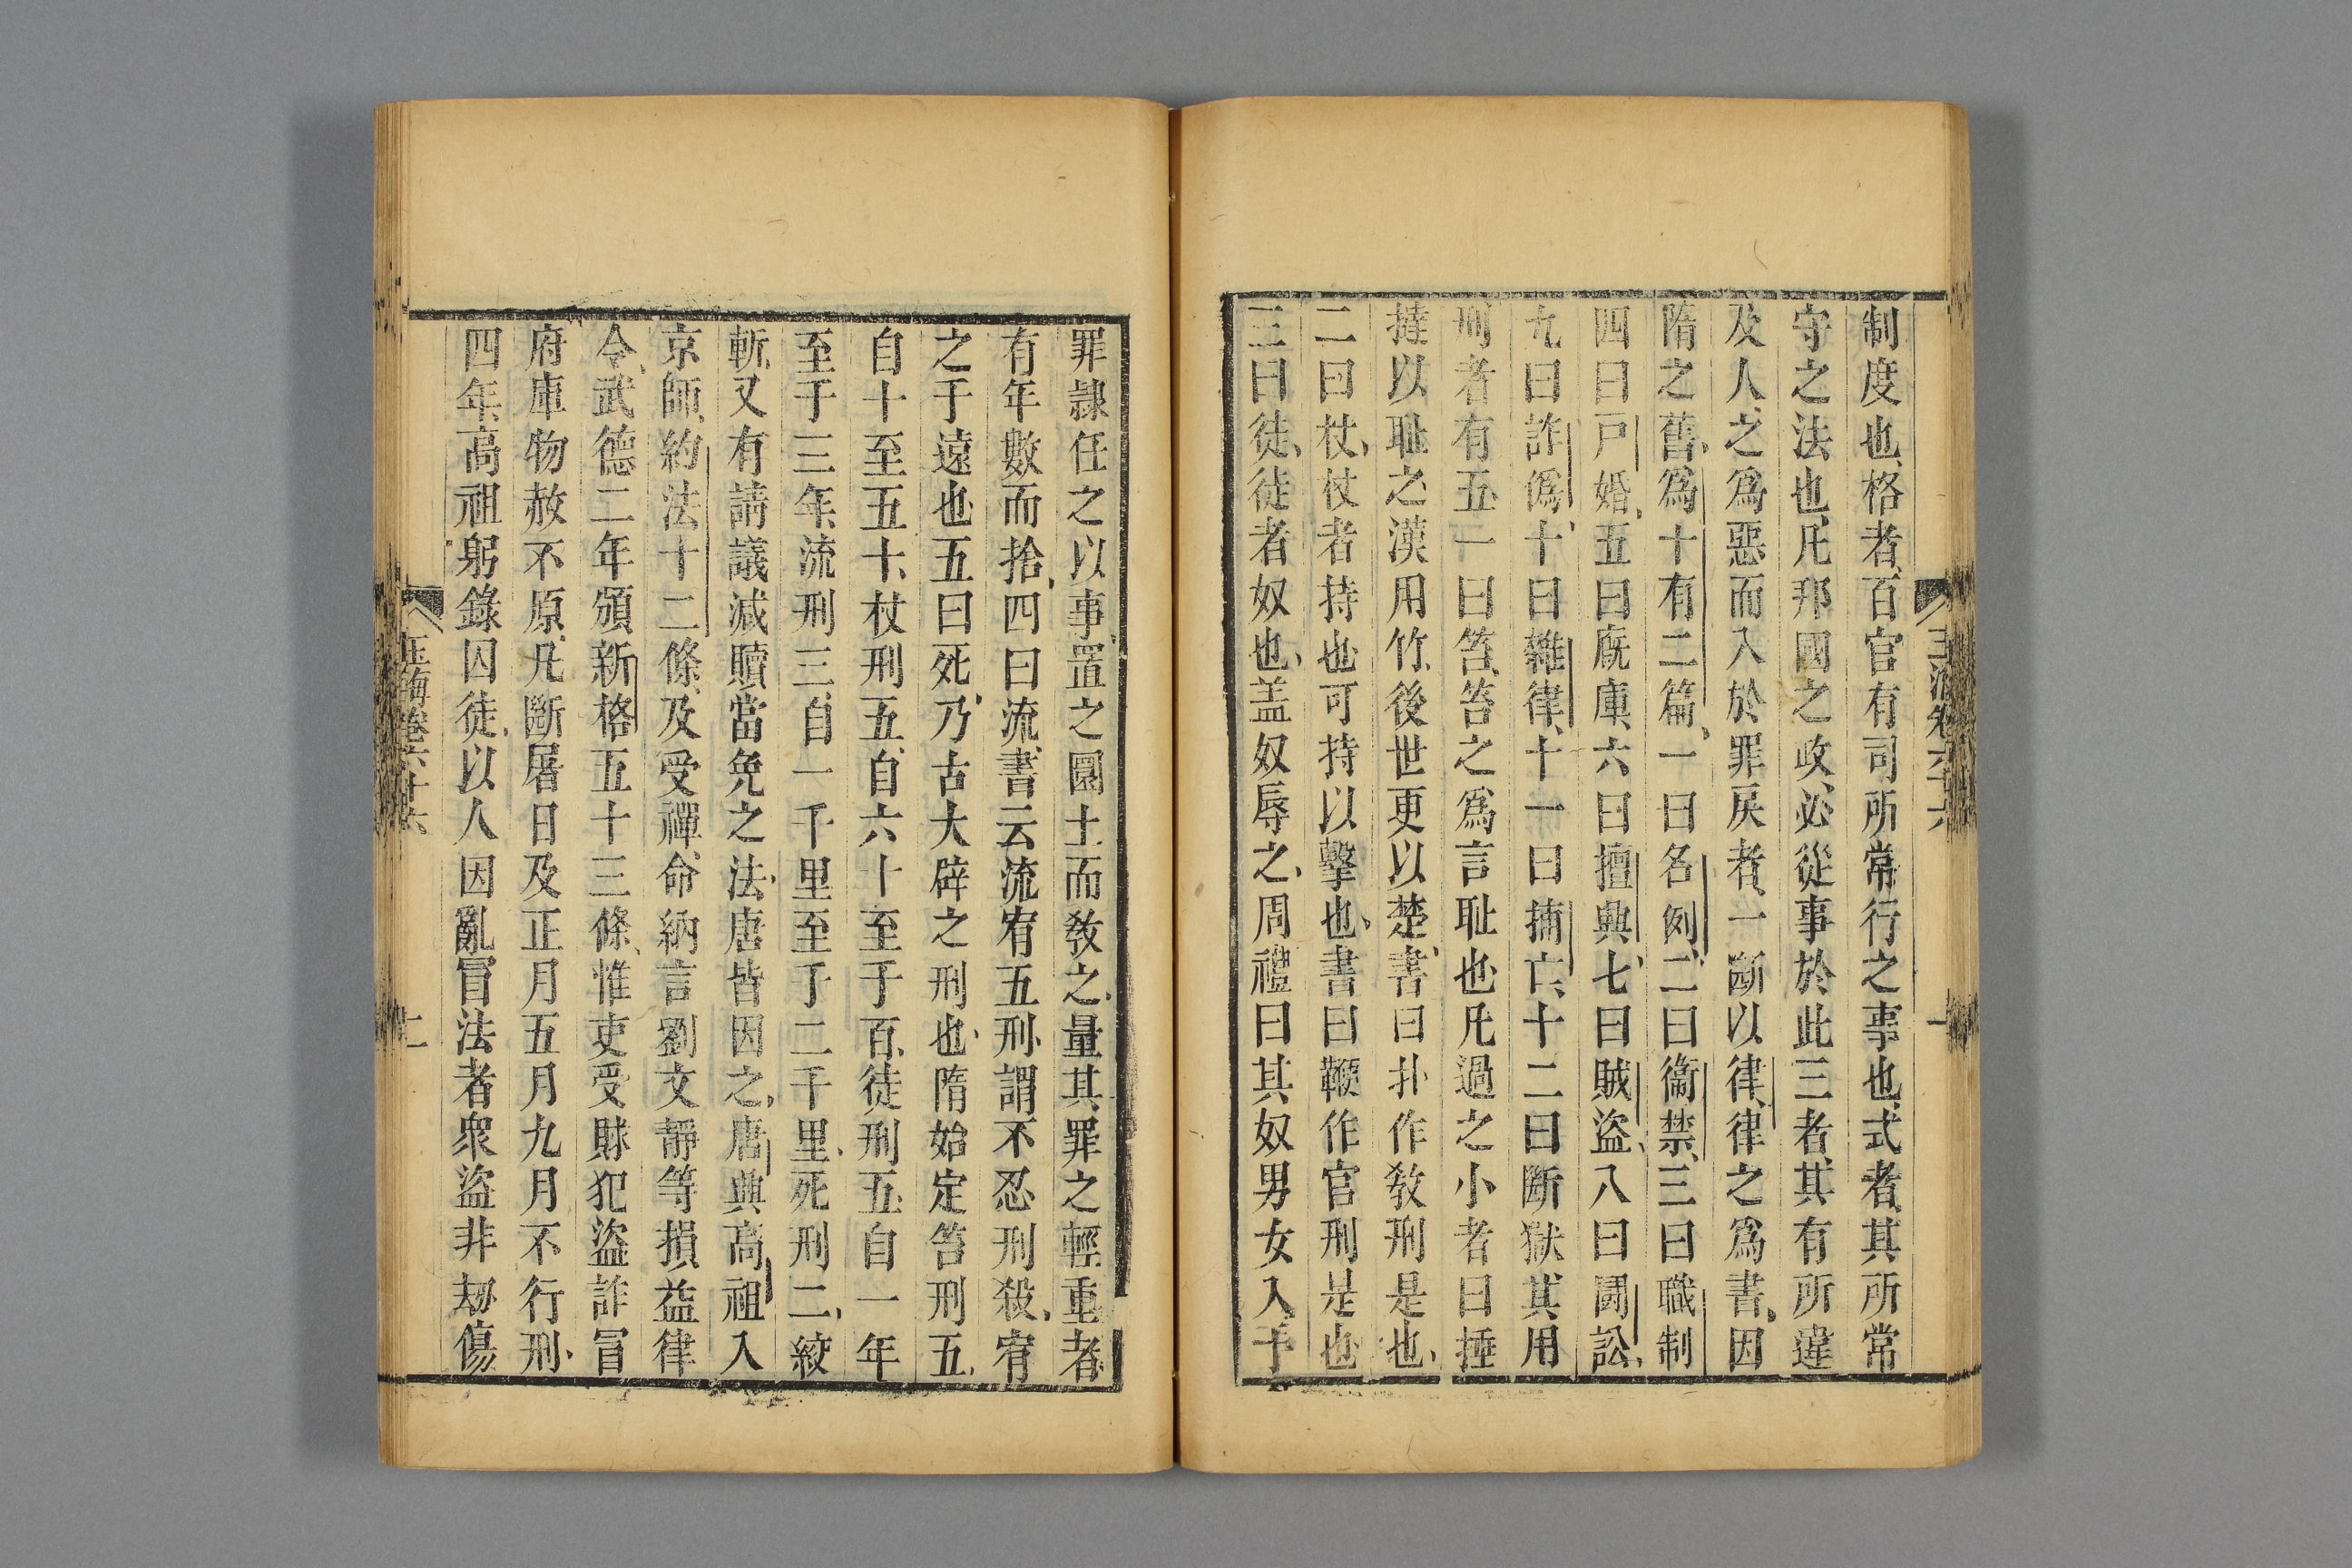 制度也格者百官有司所常行之事也式者其所常
守之法也凡邦國之政必從事於此三者其有所違
及人之爲惡而入於罪戾者一斷以律律之爲書因
隋之舊爲十有二篇一曰名例二曰衞禁三曰職制
四曰戸婚五曰廐庫六曰擅興七曰賊盜八曰鬬訟
九曰詐僞十曰雜律十一曰捕亡十二曰斷獄其用
刑者有五一曰笞笞之爲言耻也凡過之小者曰捶
撻以耻之漢用竹後世更以楚書曰扑作敎刑是也
二曰杖杖者持也可持以擊也書曰鞭作官刑是也
三曰徒徒者奴也盖奴辱之周禮曰其奴男女入于
玉海卷六十六 一
罪隷任之以事置之圜土而敎之量其罪之輕重者
有年數而拾四曰流書云流宥五刑謂不忍刑殺宥
之于遠也五曰死乃古大辟之刑也隋始定笞刑五
自十至五十杖刑五自六十至于百徒刑五自一年
至于三年流刑三自一千里至于二千里死刑二絞
斬又有請議减贖當免之法唐皆因之唐興高祖入
京師約法十二條及受禪命納言劉文靜等損益律
令武德二年頒新格五十三條惟吏受財犯盜詐冒
府庫物赦不原凡斷屠日及正月五月九月不行刑
四年高祖躬錄囚徒以人因亂冒法者衆盜非刼傷
玉海卷六十六 二